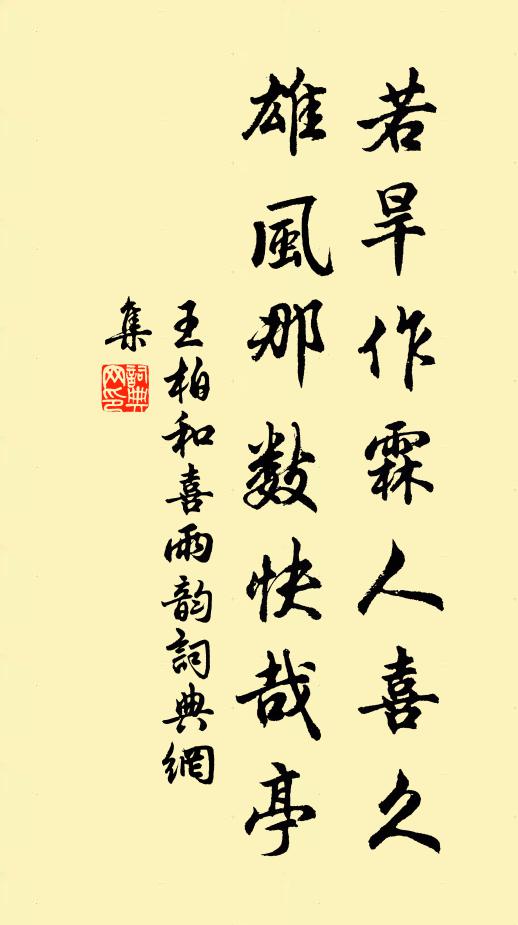 若旱作霖人喜久
雄風那数快哉亭
王柏和喜雨韵詞典網
集
詞典網印